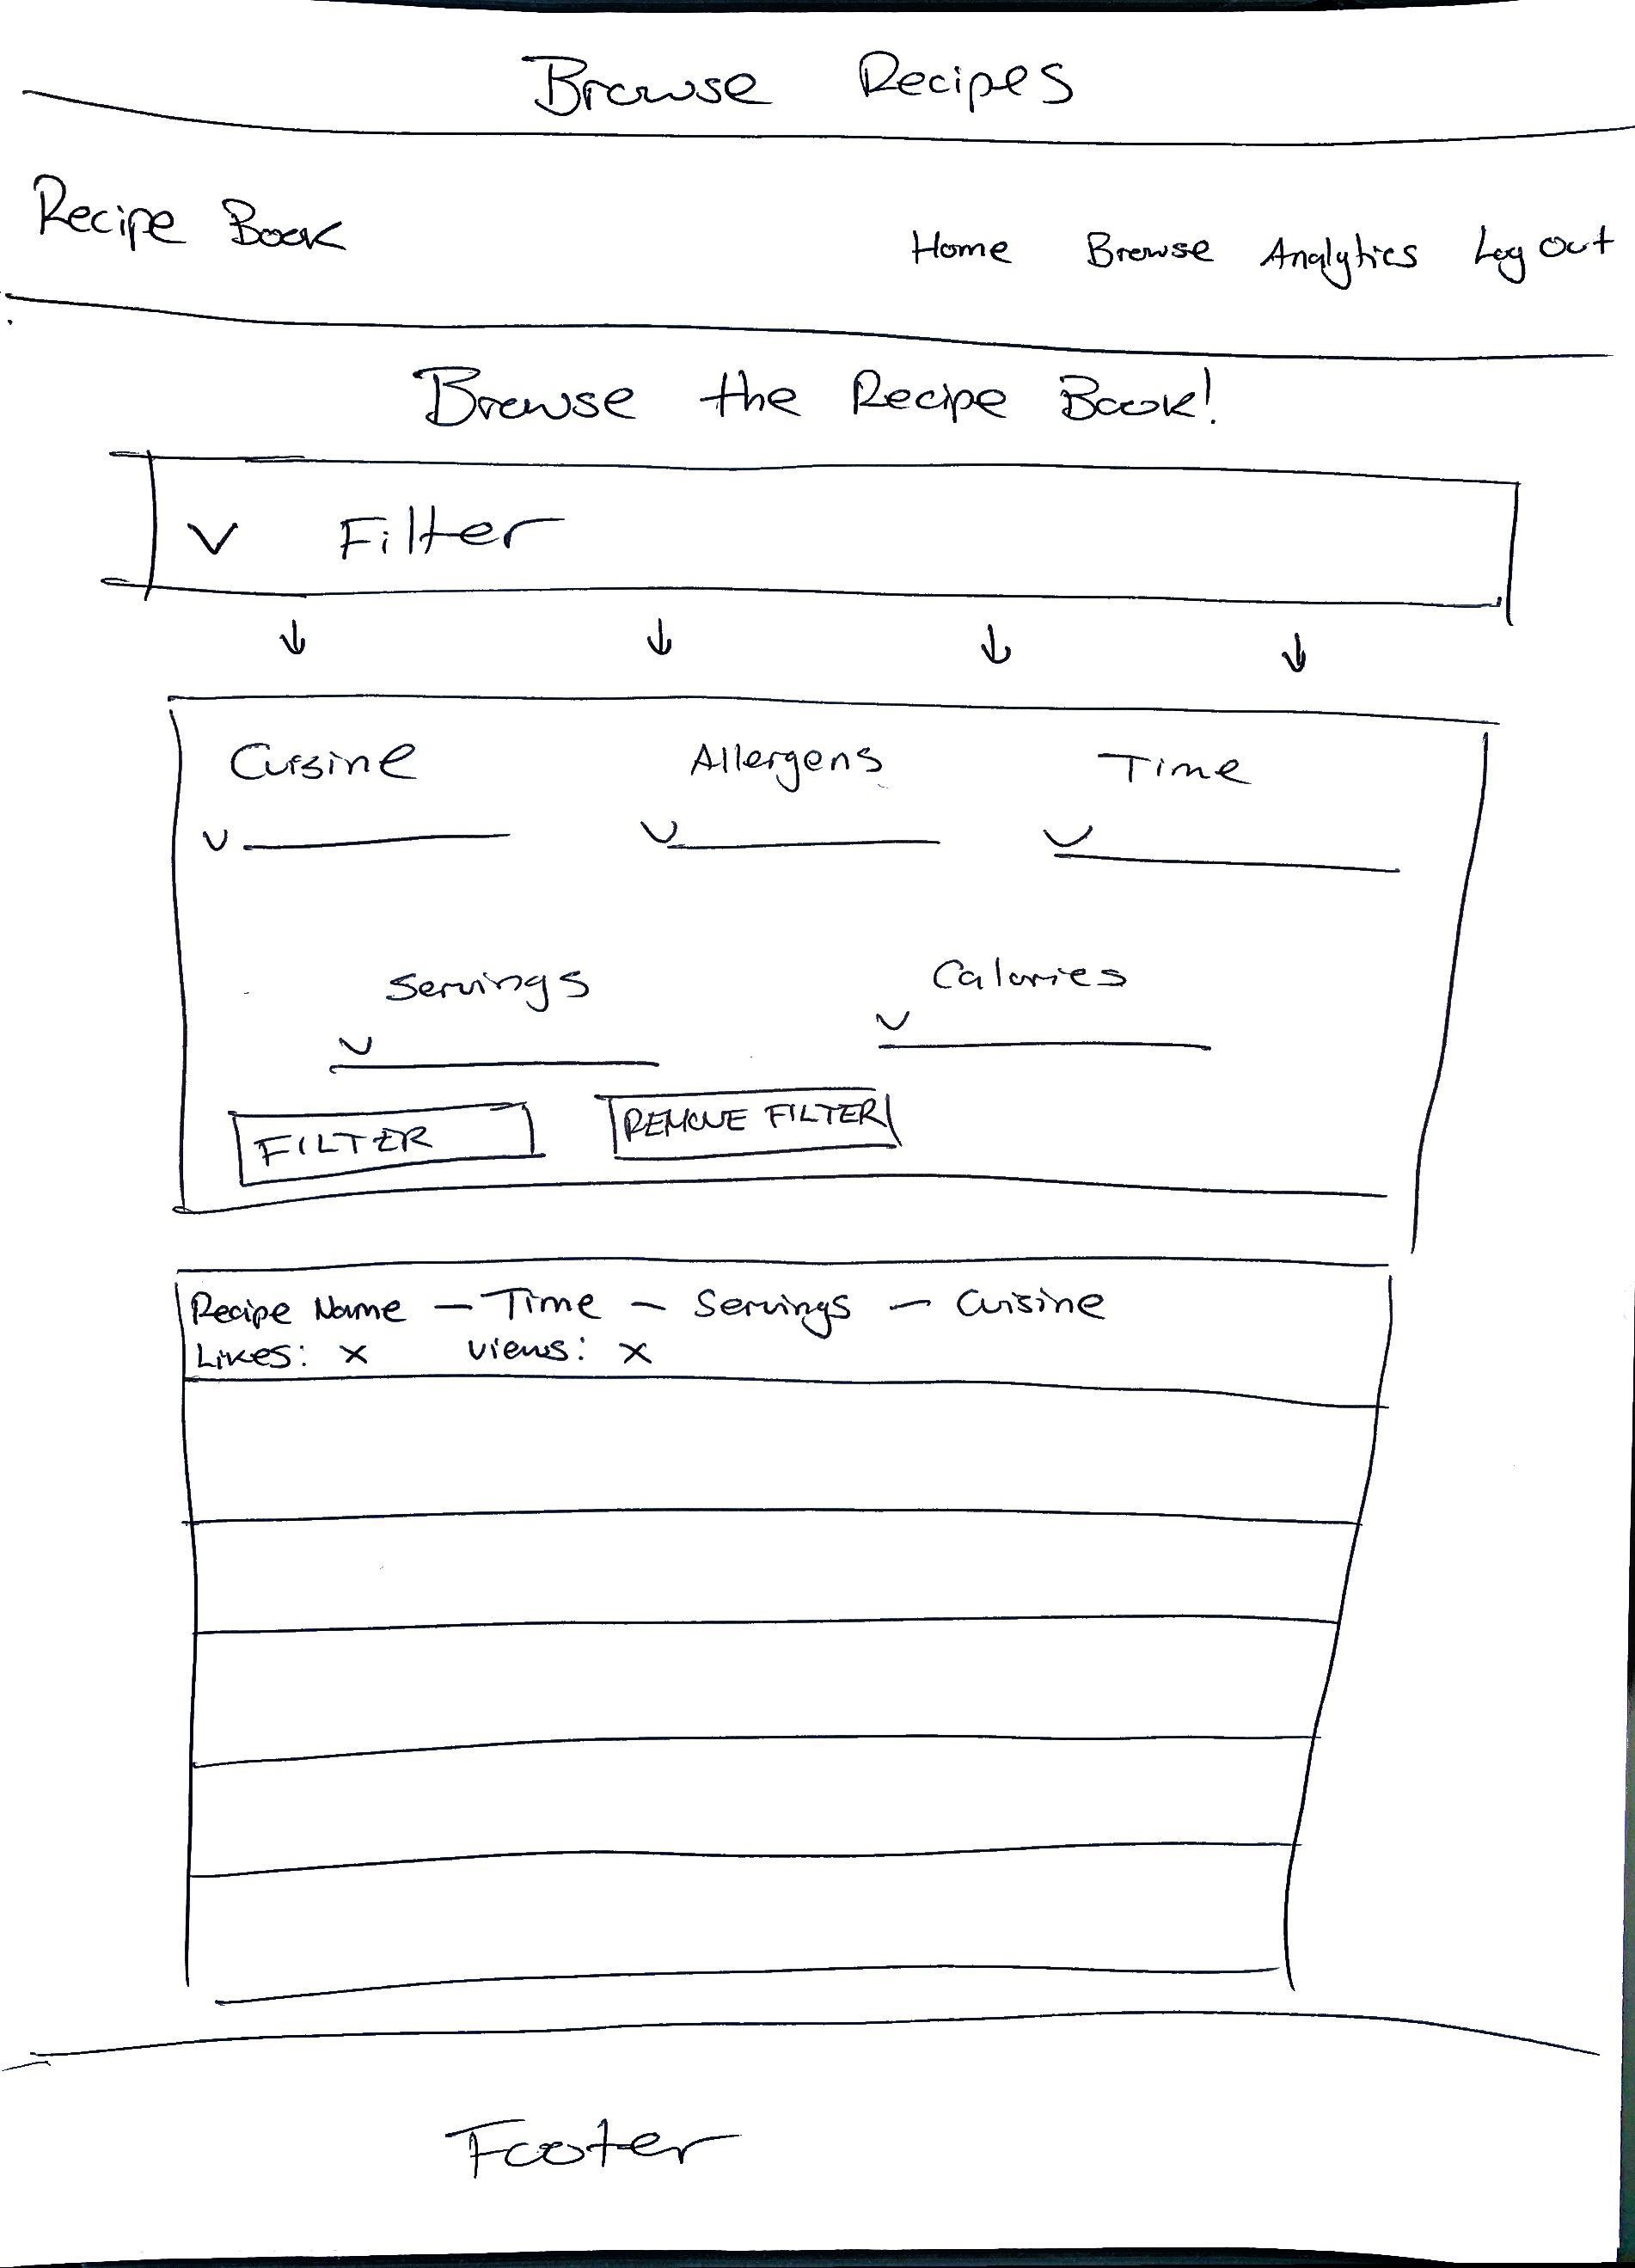 Browse Recipes
Recipe Book Home Browse Analytics Log Out
Browse the Recipe Book!
Filter
Cuisine Allergens Time
Servings Calories
FILTER REMOVE FILTER
Recipe Name - Time - Servings - Cuisine
Likes: x Views: x
Footer